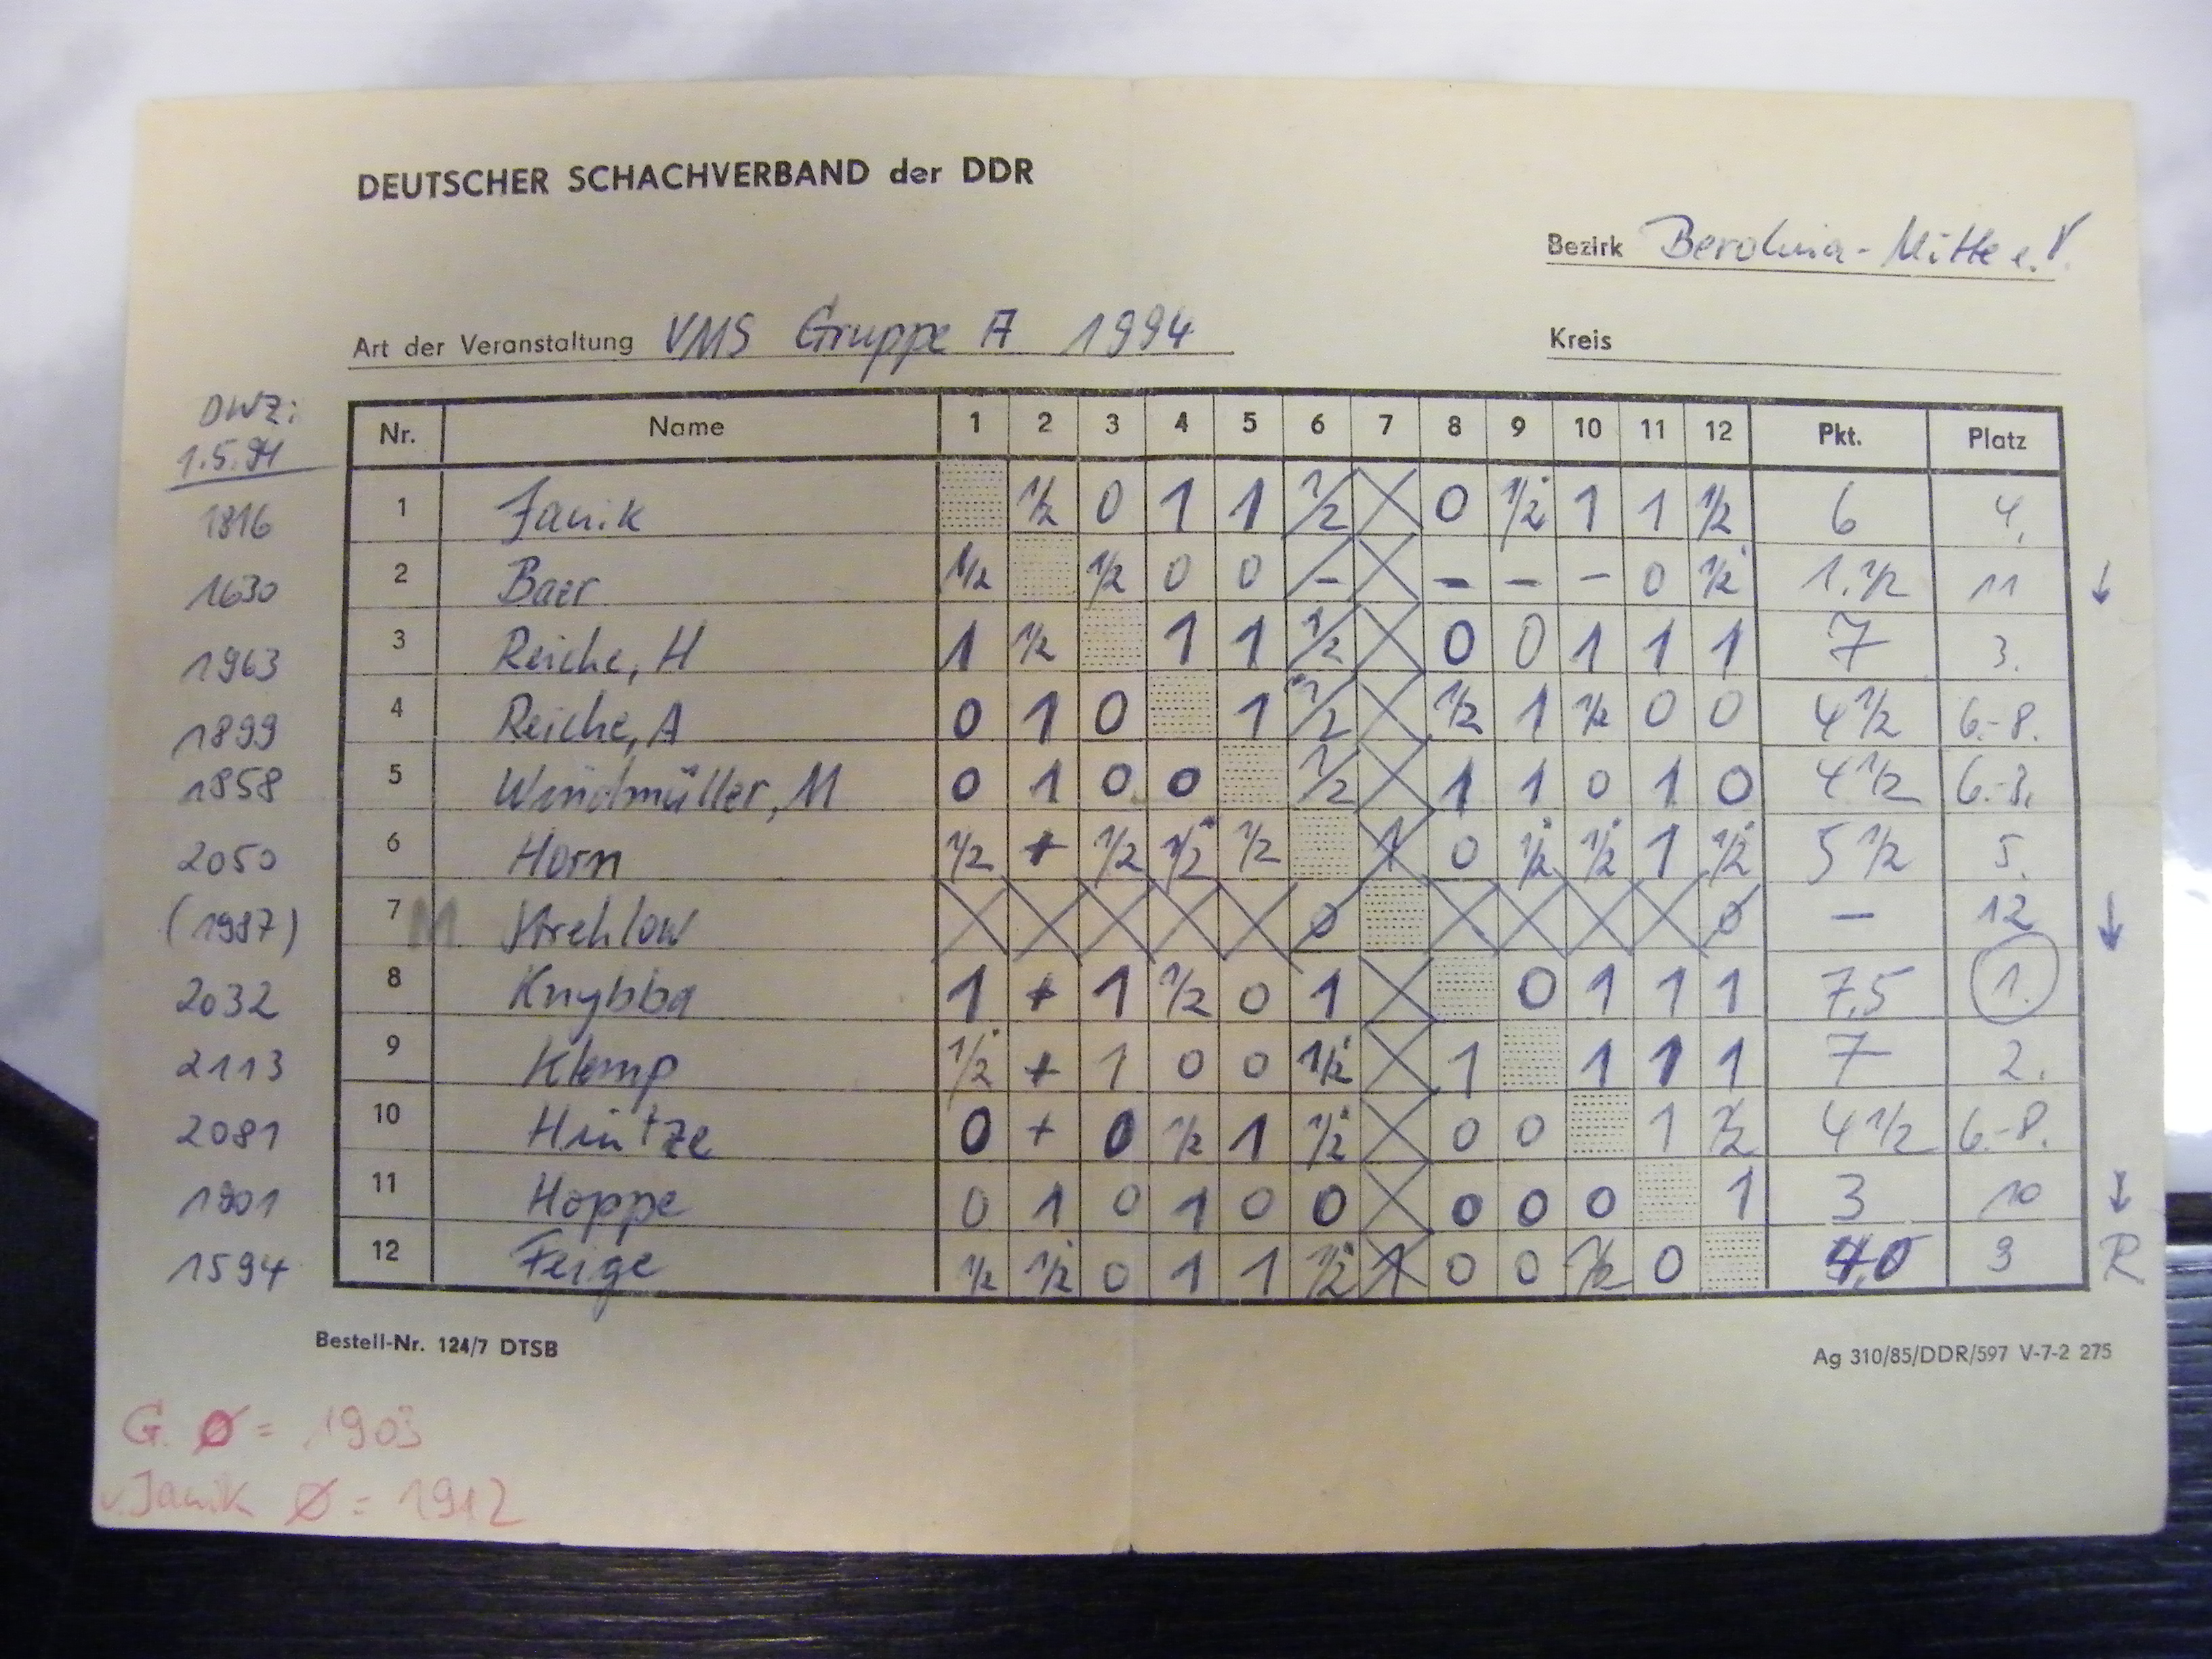 DEUTSCHER SCHACHVERBAND der DDR
Bezirk Berolina-Mitte e.V.
Art der Veranstaltung VMS Gruppe A 1994
Kreis
DWZ:
1.5.94
Nr. Name 1 2 3 4 5 6 7 8 9 10 11 12 Pkt. Platz
1816 1 Janik 1/2 0 1 1 1/2 0 1/2 1 1 1/2 6 4.
1630 2 Baer 1/2 1/2 0 0 - - - - 0 1/2 1.1/2 11 ↓
1963 3 Reiche, H 1 1/2 1 1 1/2 0 0 1 1 1 7 3.
1899 4 Reiche, A 0 1 0 1 1/2 1/2 1 1/2 0 0 4 1/2 6.-8.
1858 5 Windmüller, M 0 1 0 0 1/2 1 1 0 1 0 4 1/2 6.-8.
2050 6 Horn 1/2 + 1/2 1/2 1/2 1 0 1/2 1/2 1 1/2 5 1/2 5.
(1987) 7 M Strehlow 0 0 - 12 ↓
2032 8 Knybba 1 + 1 1/2 0 1 0 1 1 1 7,5 1.
2113 9 Klemp 1/2 + 1 0 0 1/2 1 1 1 1 7 2.
2081 10 Hintze 0 + 0 1/2 1 1/2 0 0 1 1/2 4 1/2 6.-8.
1901 11 Hoppe 0 1 0 1 0 0 0 0 0 1 3 10 ↓
1594 12 Feige 1/2 1/2 0 1 1 1/2 1 0 0 1/2 0 4,0 9 R
Bestell-Nr. 124/7 DTSB
Ag 310/85/DDR/597 V-7-2 275
G. Ø = 1903
v. Janik Ø = 1912